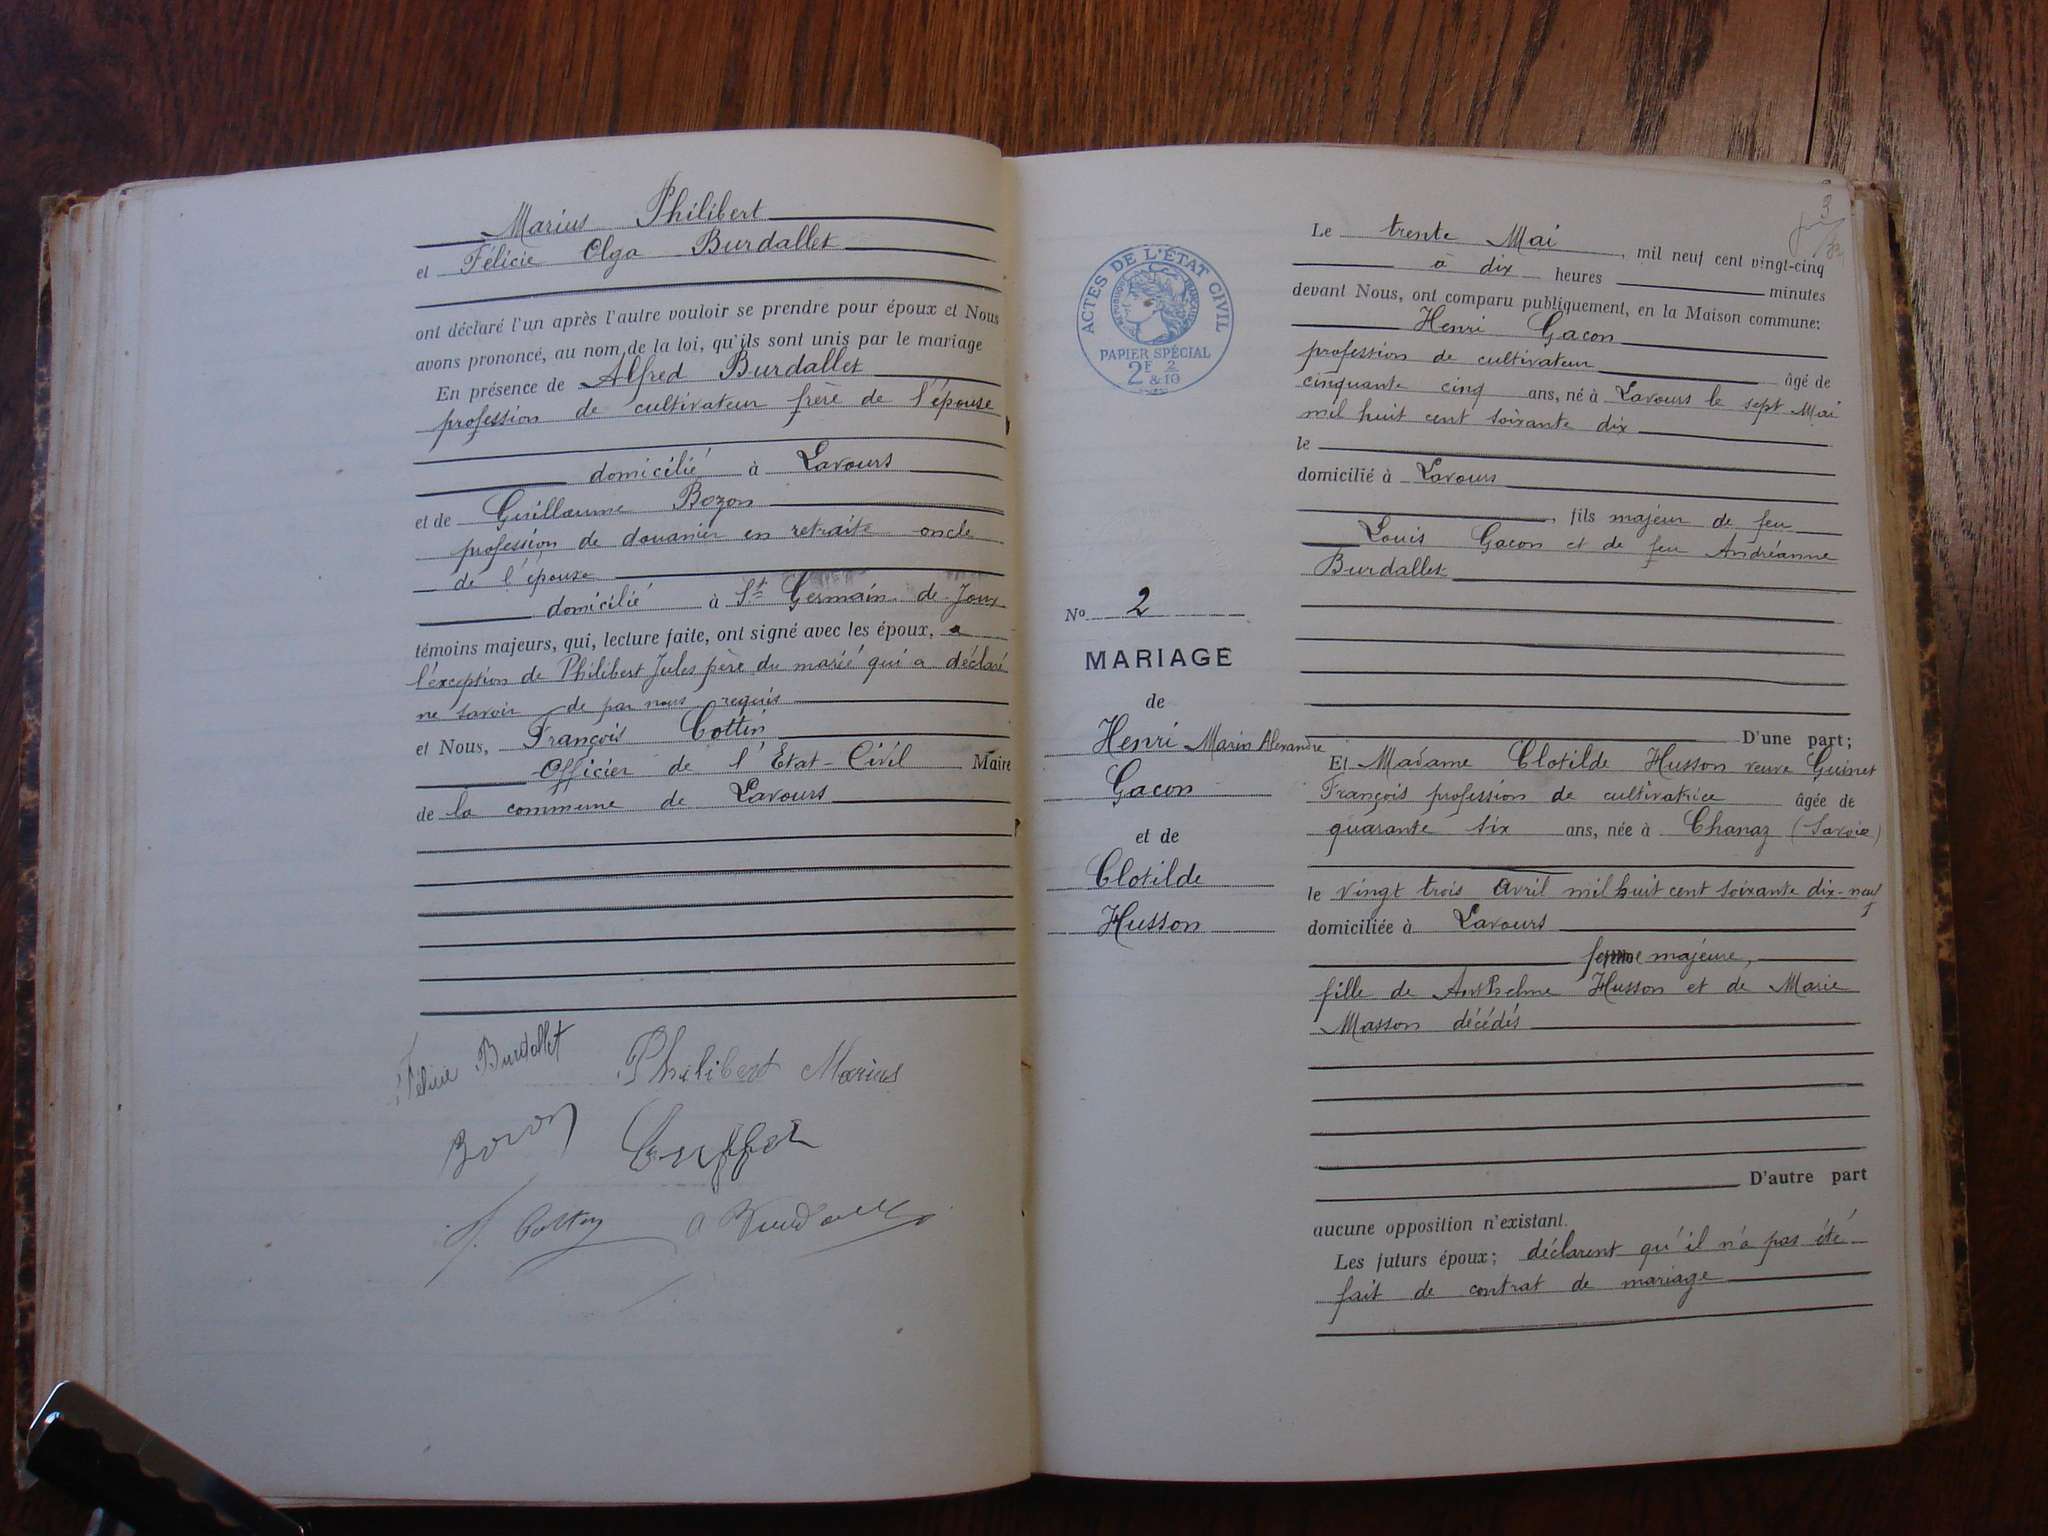 Marius Philibert
et Félicie Olga Burdallet
ont déclaré l'un après l'autre vouloir se prendre pour époux et Nous
avons prononcé, au nom de la loi, qu'ils sont unis par le mariage
En présence de Alfred Burdallet
profession de cultivateur frère de l'épouse
domicilié à Lavours
et de Guillaume Bozon
profession de douanier en retraite oncle
de l'épouse
domicilié à St Germain de Joux
témoins majeurs, qui, lecture faite, ont signé avec les époux, a
l'exception de Philibert Jules père du marié qui a déclaré
ne savoir de par nous requis
et Nous, François Cottin
Officier de l'Etat-Civil Maire
de la commune de Lavours
Félicie Burdallet Philibert Marius
Bozon
F. Cottin A Burdallet
3
ACTES DE L'ÉTAT CIVIL
RÉPUBLIQUE FRANÇAISE
PAPIER SPÉCIAL
2F 2/10
&
No 2
MARIAGE
de
Henri Marin Alexandre
Gacon
et de
Clotilde
Husson
Le trente Mai, mil neuf cent vingt-cinq
à dix heures minutes
devant Nous, ont comparu publiquement, en la Maison commune:
Henri Gacon
profession de cultivateur âgé de
cinquante cinq ans, né à Lavours le sept Mai
mil huit cent soixante dix
le
domicilié à Lavours
, fils majeur de feu
Louis Gacon et de feu Andréanne
Burdallet
D'une part;
Et Madame Clotilde Husson veuve Guinet
François profession de cultivatrice âgée de
quarante six ans, née à Chanaz (Savoie)
le vingt trois Avril mil huit cent soixante dix-neuf
domiciliée à Lavours
majeure,
fille de Anthelme Husson et de Marie
Masson décédés
D'autre part
aucune opposition n'existant.
Les futurs époux; déclarent qu'il n'a pas été
fait de contrat de mariage